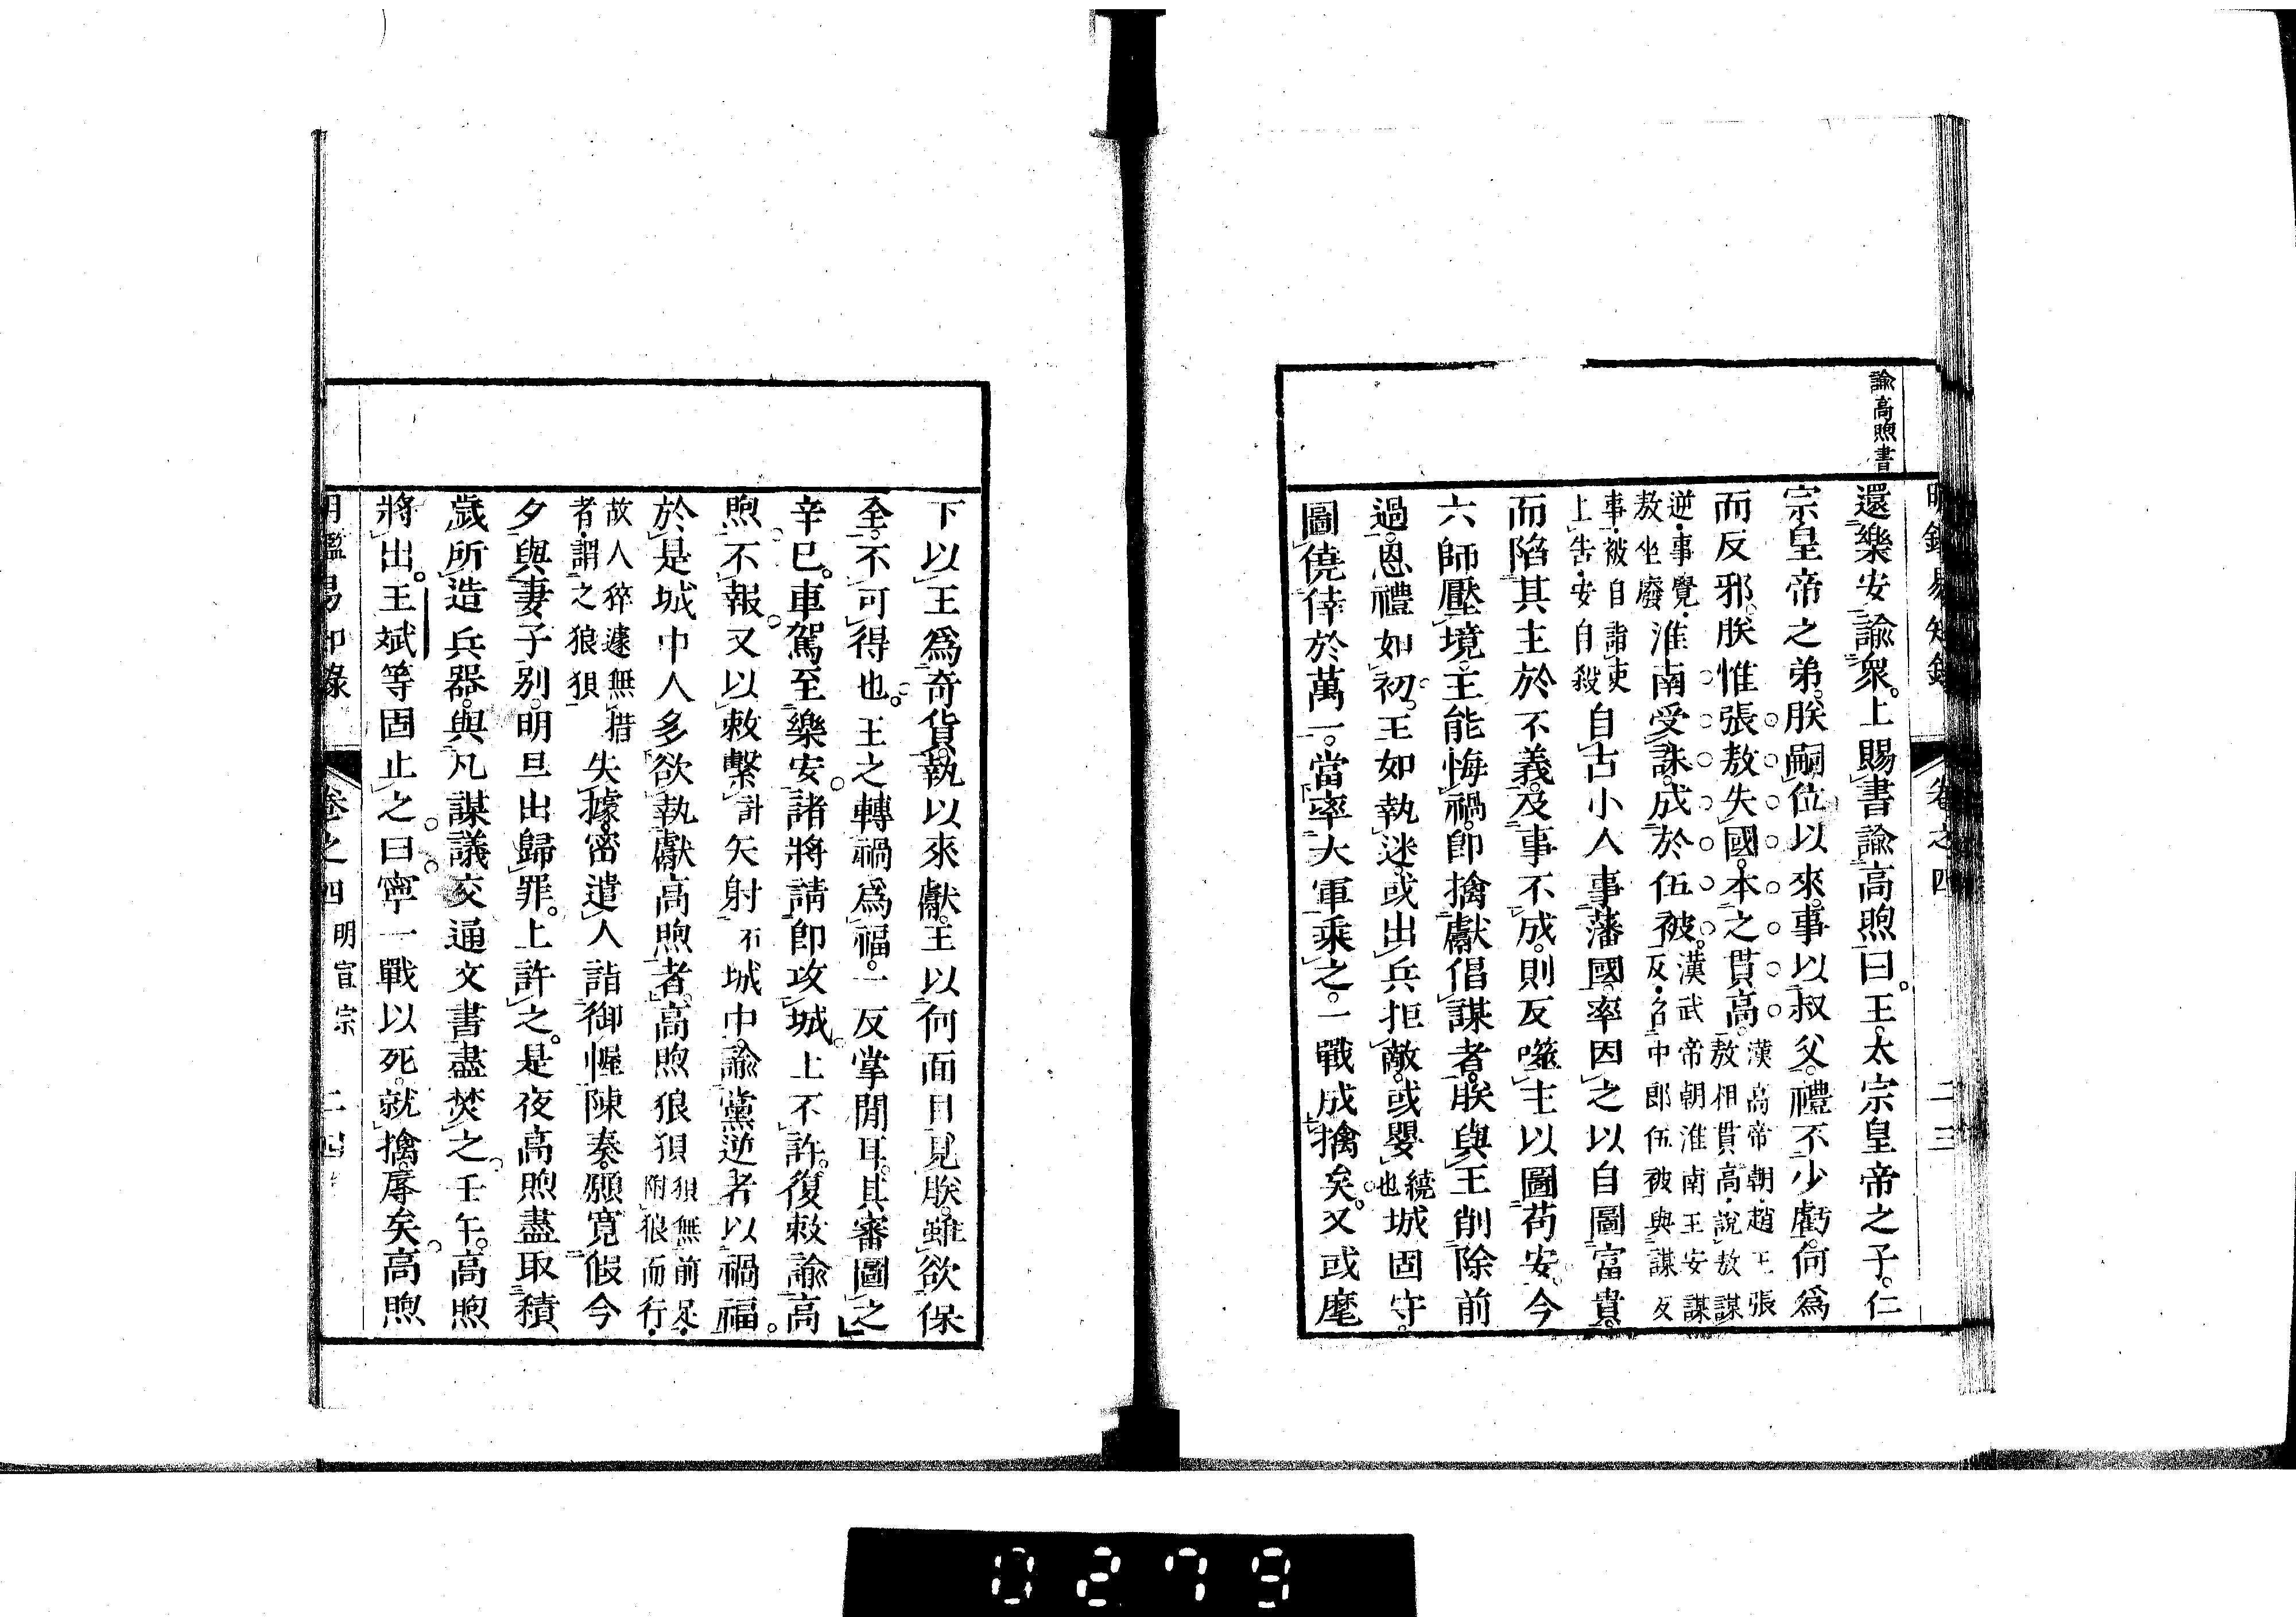 諭高煦書
明鑑易知錄 卷之四 二三
還樂安諭衆。上賜書諭高煦曰。王太宗皇帝之子。仁
宗皇帝之弟。朕嗣位以來。事以叔父。禮不少虧。何爲
而反邪。朕惟張敖失國。本之貫高。漢高帝朝。趙王張敖相貫高。說敖謀
逆。事覺。敖坐廢淮南受誅。成於伍被。漢武帝朝淮南王安謀反。召中郎伍被與謀反
事。被自詣吏上告。安自殺自古小人事藩國。率因之以自圖富貴。
而陷其主於不義。及事不成。則反噬主以圖苟安。今
六師壓境。王能悔禍。卽擒獻倡謀者。朕與王削除前
過。恩禮如初。王如執迷。或出兵拒敵。或嬰繞也城固守。
圖僥倖於萬一。當率大軍乘之。一戰成擒矣。又或麾
下以王爲奇貨。執以來獻。王以何面目見朕。雖欲保
全。不可得也。王之轉禍爲福。一反掌閒耳。其審圖之
辛巳。車駕至樂安。諸將請卽攻城。上不許。復敕諭高
煦。不報。又以敕繫計矢射石城中。諭黨逆者以禍福。
於是城中人多欲執獻高煦者。高煦狼狽狽無前足。附狼而行。
故人猝遽無措者。謂之狼狽失據。密遣人詣御幄陳奏。願寬假今
夕。與妻子別。明旦出歸罪。上許之。是夜高煦盡取積
歲所造兵器。與凡謀議交通文書盡焚之。壬午。高煦
將出。王斌等固止之。曰寧一戰以死。就擒。辱矣。高煦
明鑑易知錄 卷之四 明宣宗 二四
0279